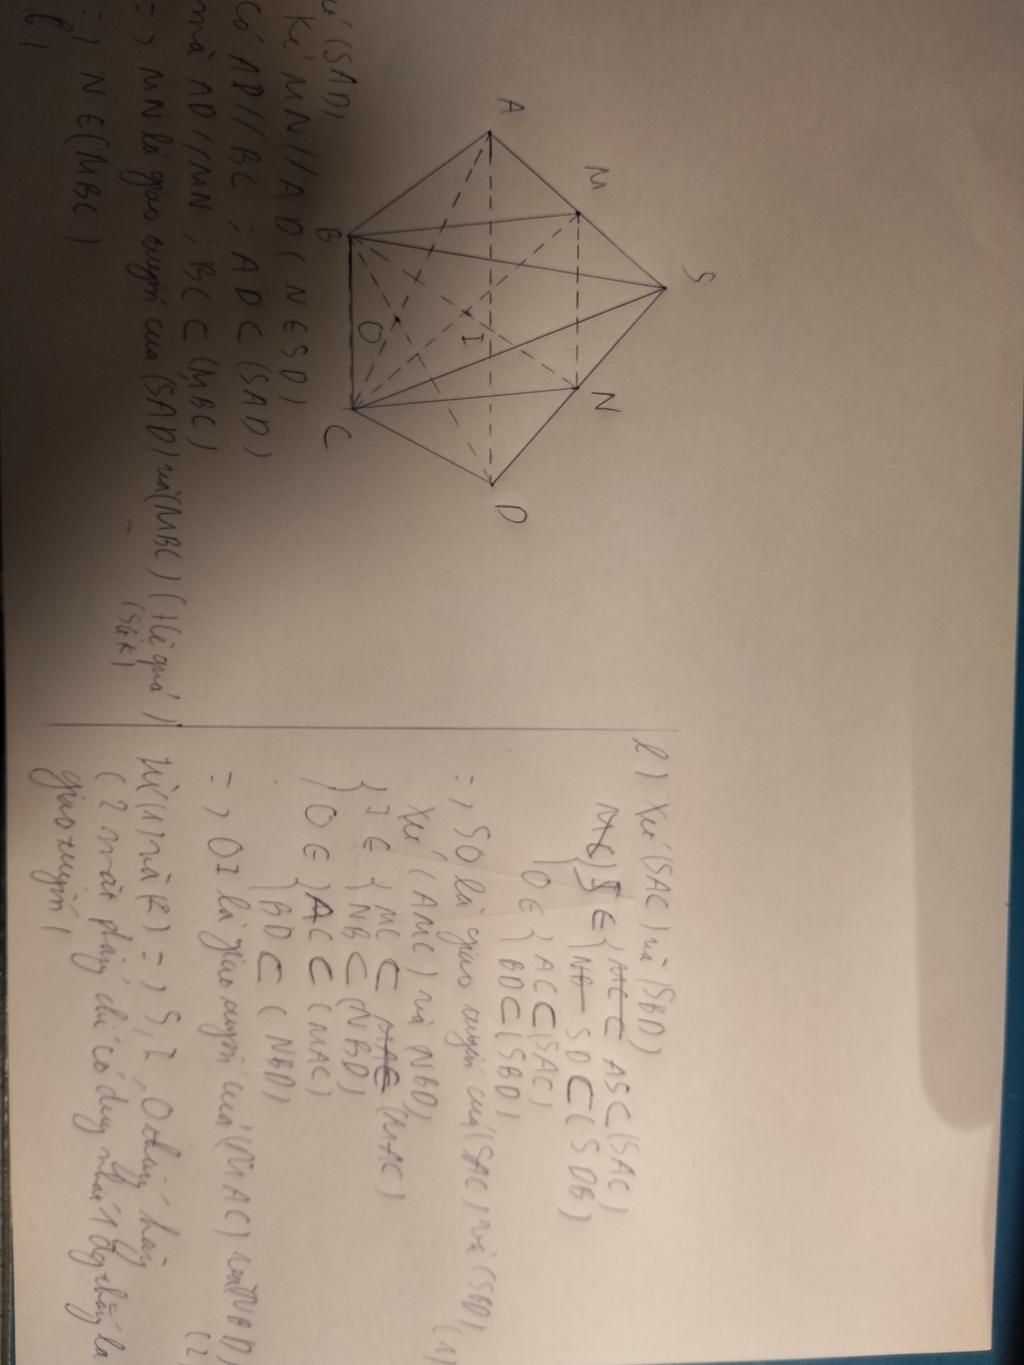 A
M
S
B
O
I
N
C
D
(SAD)
Kẻ MN // AD (N ∈ SD)
Có AD // BC ; AD ⊂ (SAD)
mà AD // MN ; BC ⊂ (MBC)
=> MN là giao tuyến của (SAD) và (MBC) (Hệ quả)
(SGK)
N ∈ (MBC)
Xét (SAC) và (SBD)
S ∈ { AS ⊂ (SAC)
SD ⊂ (SDB)
O ∈ { AC ⊂ (SAC)
BD ⊂ (SBD)
=> SO là giao tuyến của (SAC) và (SBD)
(1)
Xét (AMC) và NBD)
I ∈ { MC ⊂ (MAC)
NB ⊂ (NBD)
O ∈ { AC ⊂ (MAC)
BD ⊂ (NBD)
=> OI là giao tuyến của (MAC) và (NBD)
(2)
=> S, I, O thẳng hàng
(2 mặt phẳng chỉ có duy nhất 1
giao tuyến)